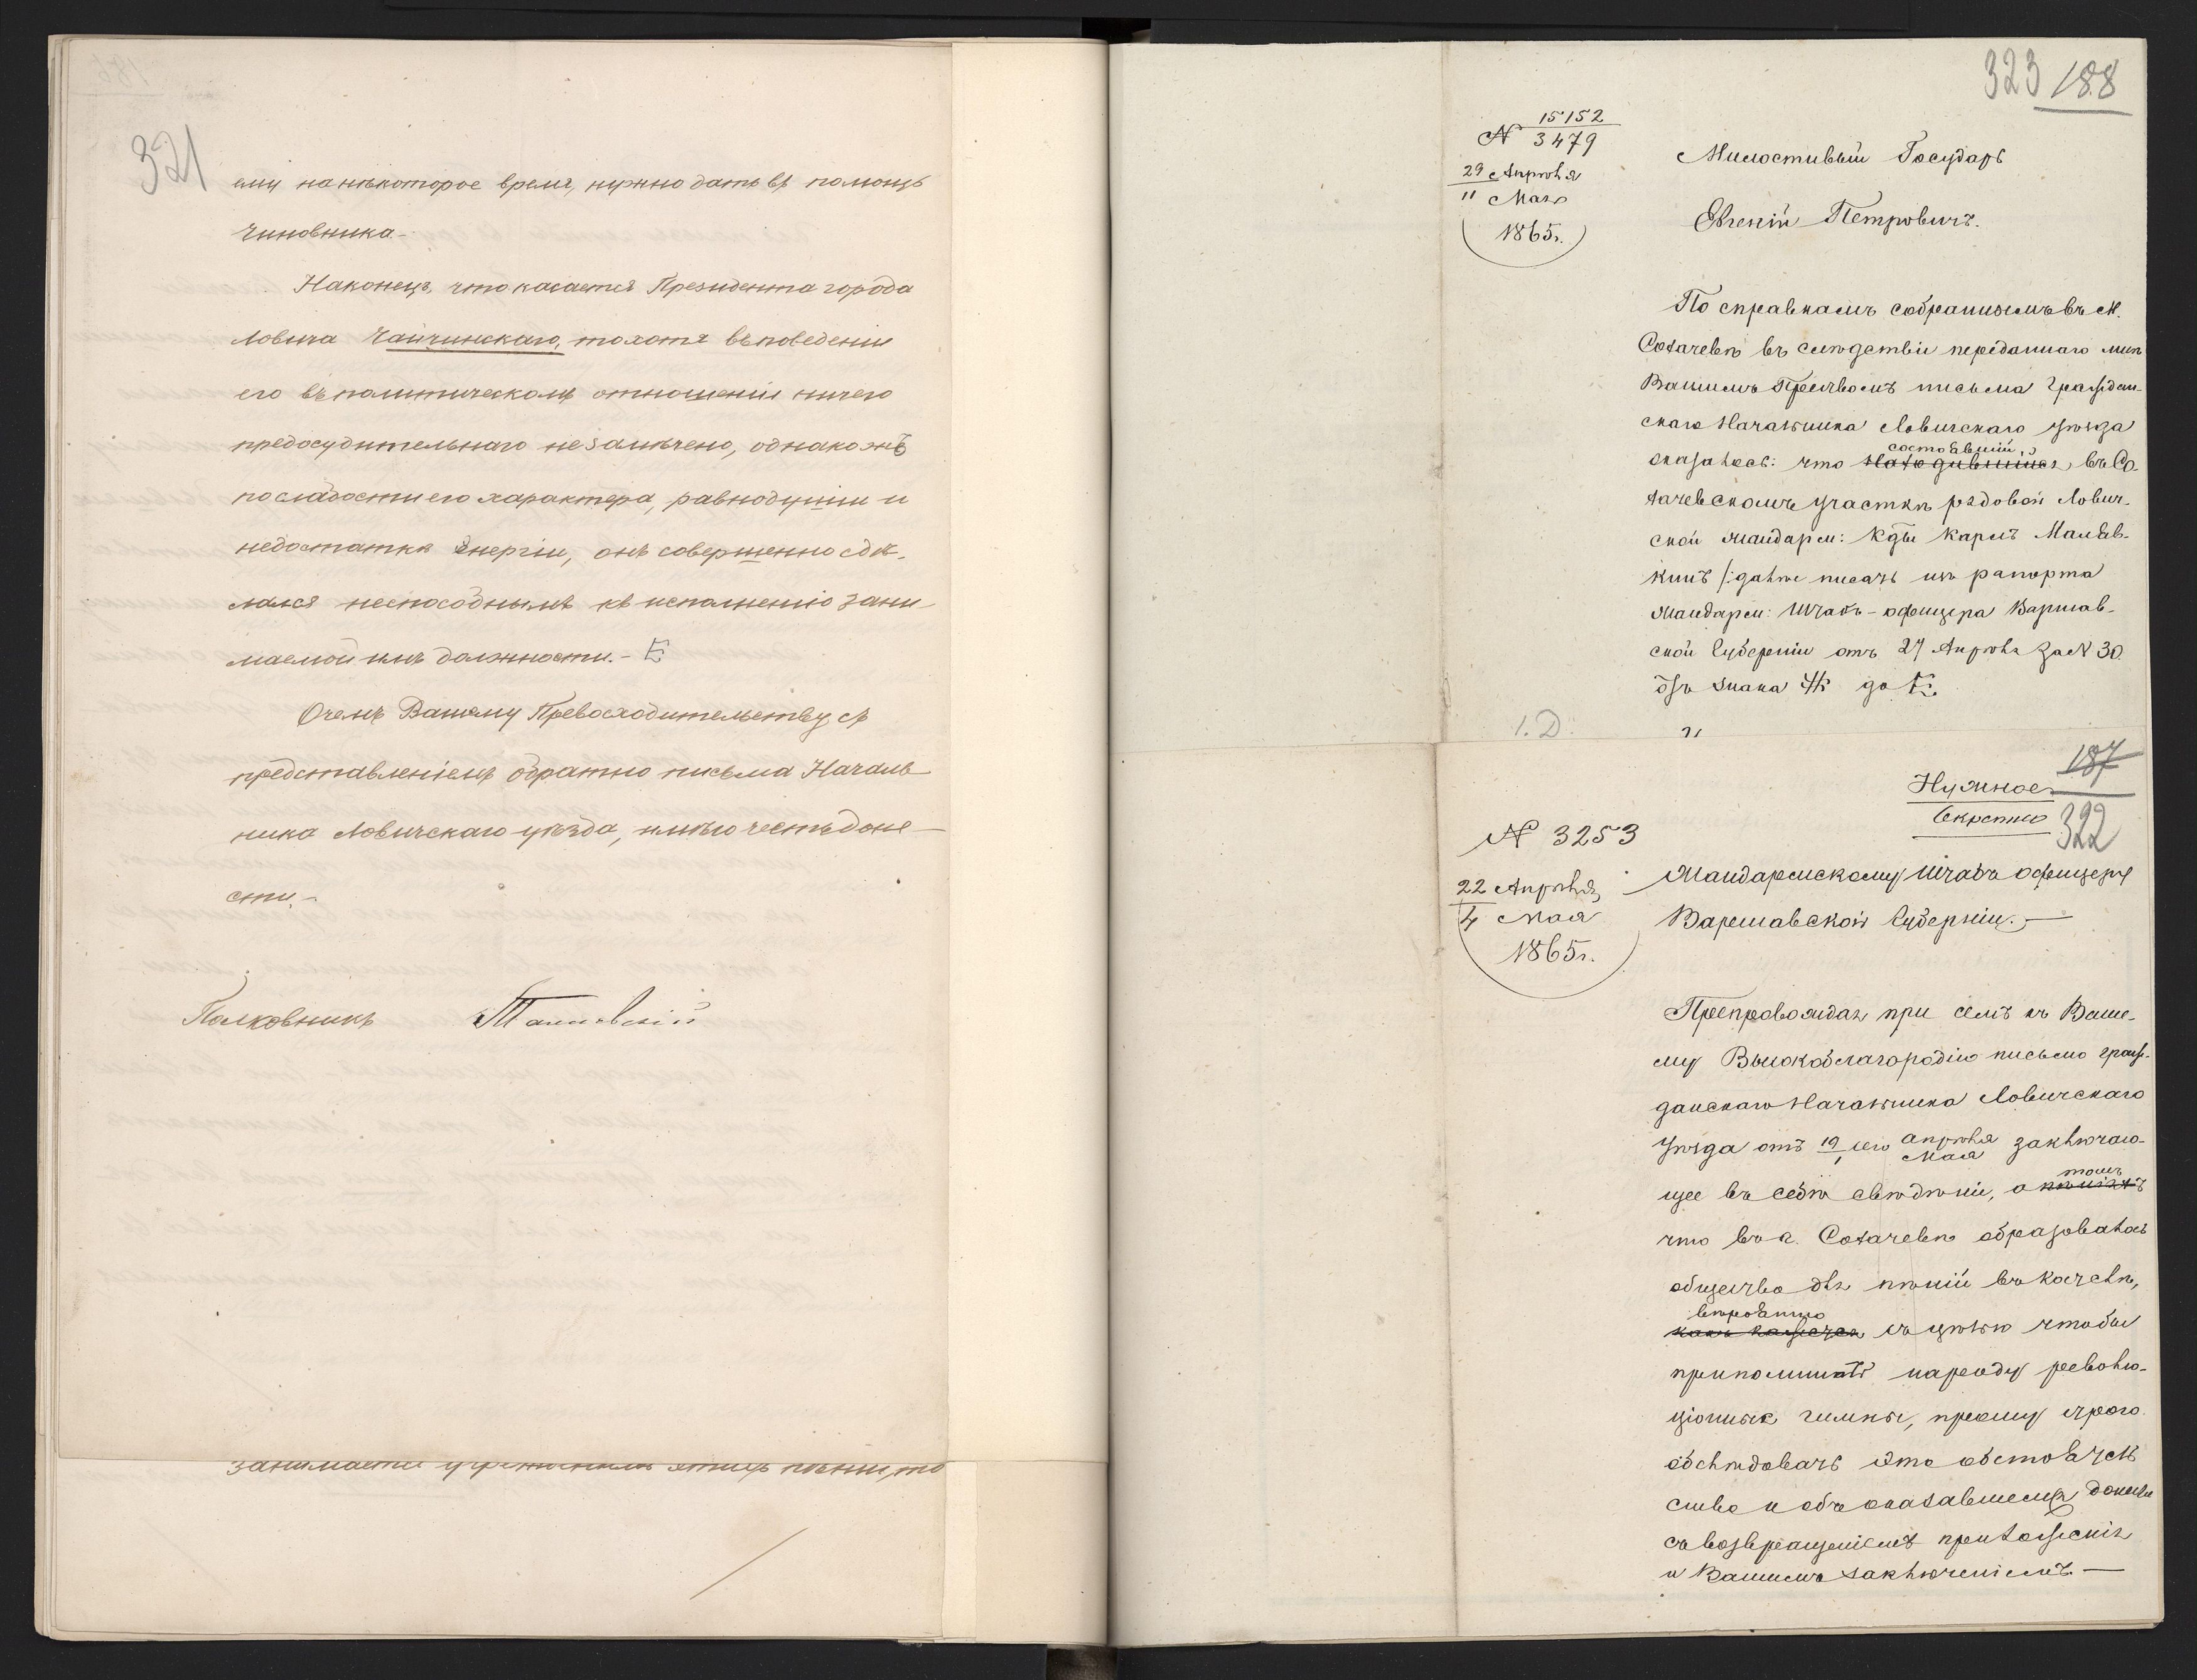 321
ему на нѣкоторое время, нужно дать въ помощь
чиновника.-
Наконецъ, что касается Президента города
Ловича Чайчинскаго, то хотя въ поведеніи
его въ политическомъ отношеніи ничего
предосудительнаго не замѣчено, однако жъ
по слабости его характера, равнодушіи и
недостатка энергіи, онъ совершенно сдѣ-
лался неспособнымъ къ исполненію зани-
маемой имъ должности.-
О чемъ Вашему Превосходительству съ
представленіемъ обратно письма Началь-
ника Ловичскаго уѣзда, имѣю честь доне-
сти.-
Полковникъ
занимается этихъ пѣній, то
323 188
15152
N 3479
29 Апрѣля
11 Мая
1865г.
Милостивый Государь
Евгеній Петровичъ.
По справкамъ собраннымъ въ М.
Сохачевѣ въ слѣдствіи переданнаго мнѣ
Вашимъ Прев-вомъ письма Граждан-
скаго Начальника Ловичскаго уѣзда
состоявшій
оказалось: что находившійся въ Со-
хачевскомъ участкѣ рядовой Лович-
ской жандарм: К-ды Карлъ
/:далѣе писать изъ рапорта
жандарм: Штабъ-офицера Варшав-
ской Губерніи отъ 27 Апрѣля за N 30.
отъ знака до
1. D.
187
Нужное
Секретно
322
N 3253
22 Апрѣля
4 Мая
1865г.
Жандармскому Штабъ офицеру
Варшавской Губерніи.-
Препровождая при семъ къ Ваше-
му Высокоблагородію письмо граж-
данскаго Начальника Ловичскаго
Уѣзда отъ 19/1 сего Апрѣля/Мая заключаю-
щее въ себѣ свѣдѣніе, о томъ
что въ г. Сохачевѣ образовалось
общество для пѣній въ костелѣ,
вѣроятно
какъ кажется съ цѣлью чтобы
припоминать народу револю-
ціонные гимны, прошу строго
обслѣдовать это обстоятель-
ство и объ оказавшемся донести
съ возвращеніемъ приложенія
и Вашимъ заключеніемъ.-